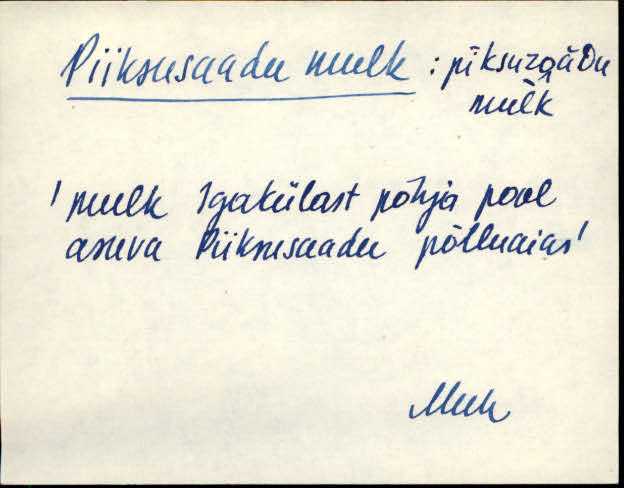 Piiksusaadu mulk : pīksuzāDu
mulk̆
' mulk Igakülast põhja pool
asuva Piiksusaadu põlluaias '
Muh